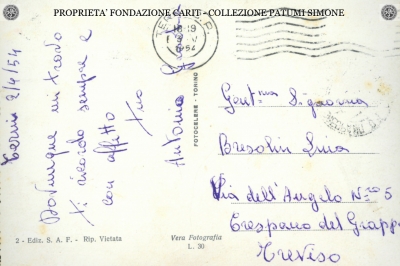 PROPRIETA' FONDAZIONE CARIT - COLLEZIONE PATUMI SIMONE
Terni 2/4/54
Dovunque mi trovo
ti ricordo sempre e
con affetto
tuo
Antonio
TERNI
18-19
54
FOTOCELERE - TORINO
Gent.ma Signorina
Bresolin Lina
Via dell'Angelo N.ro 5
Crespano del Grappa
Treviso
2 - Ediz. S. A. F. - Rip. Vietata
Vera Fotografia
L. 30